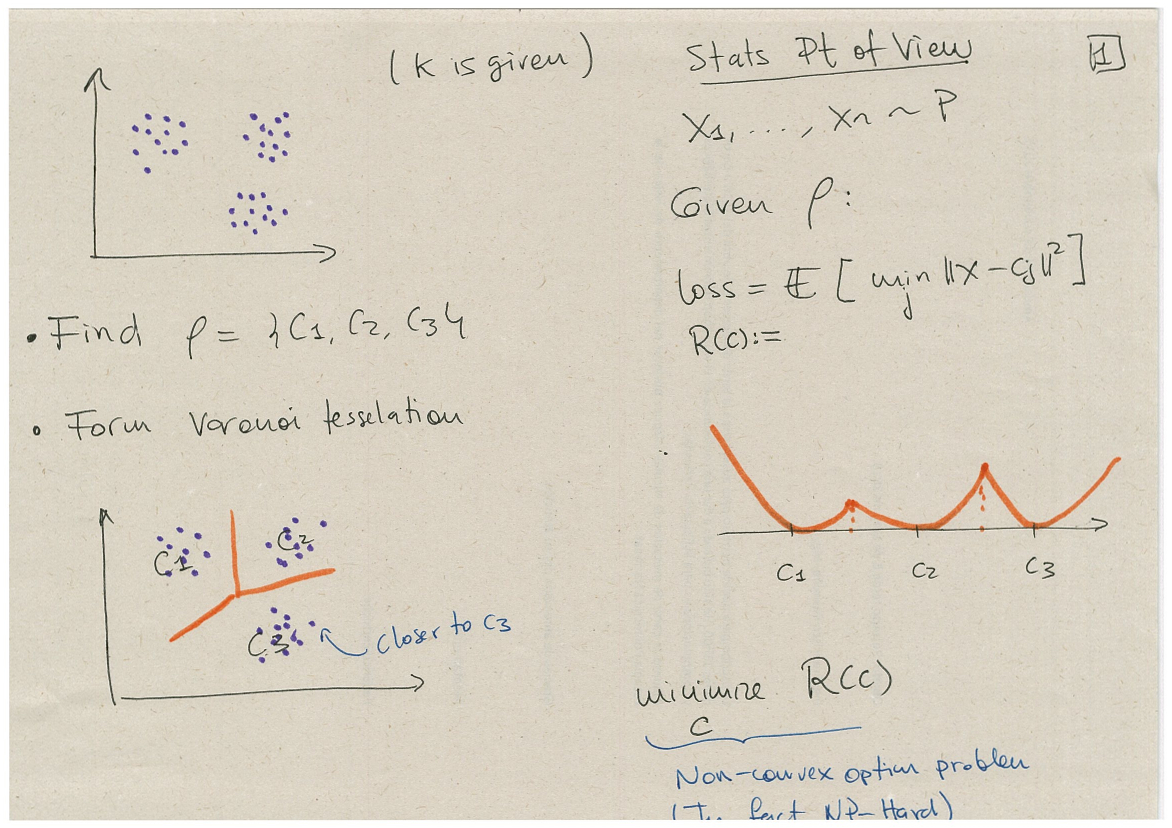 (K is given)
• Find ρ = {C1, C2, C3}
• Form Voronoi tesselation
C1
C2
C3
closer to C3
Stats Pt of View
1
X1, ..., Xn ~ P
Given ρ:
loss = 𝔼 [ min ||X - Cj||²]
j
R(C):=
C1 C2 C3
minimize R(C)
C
Non-convex optim problem
(In fact NP-Hard)